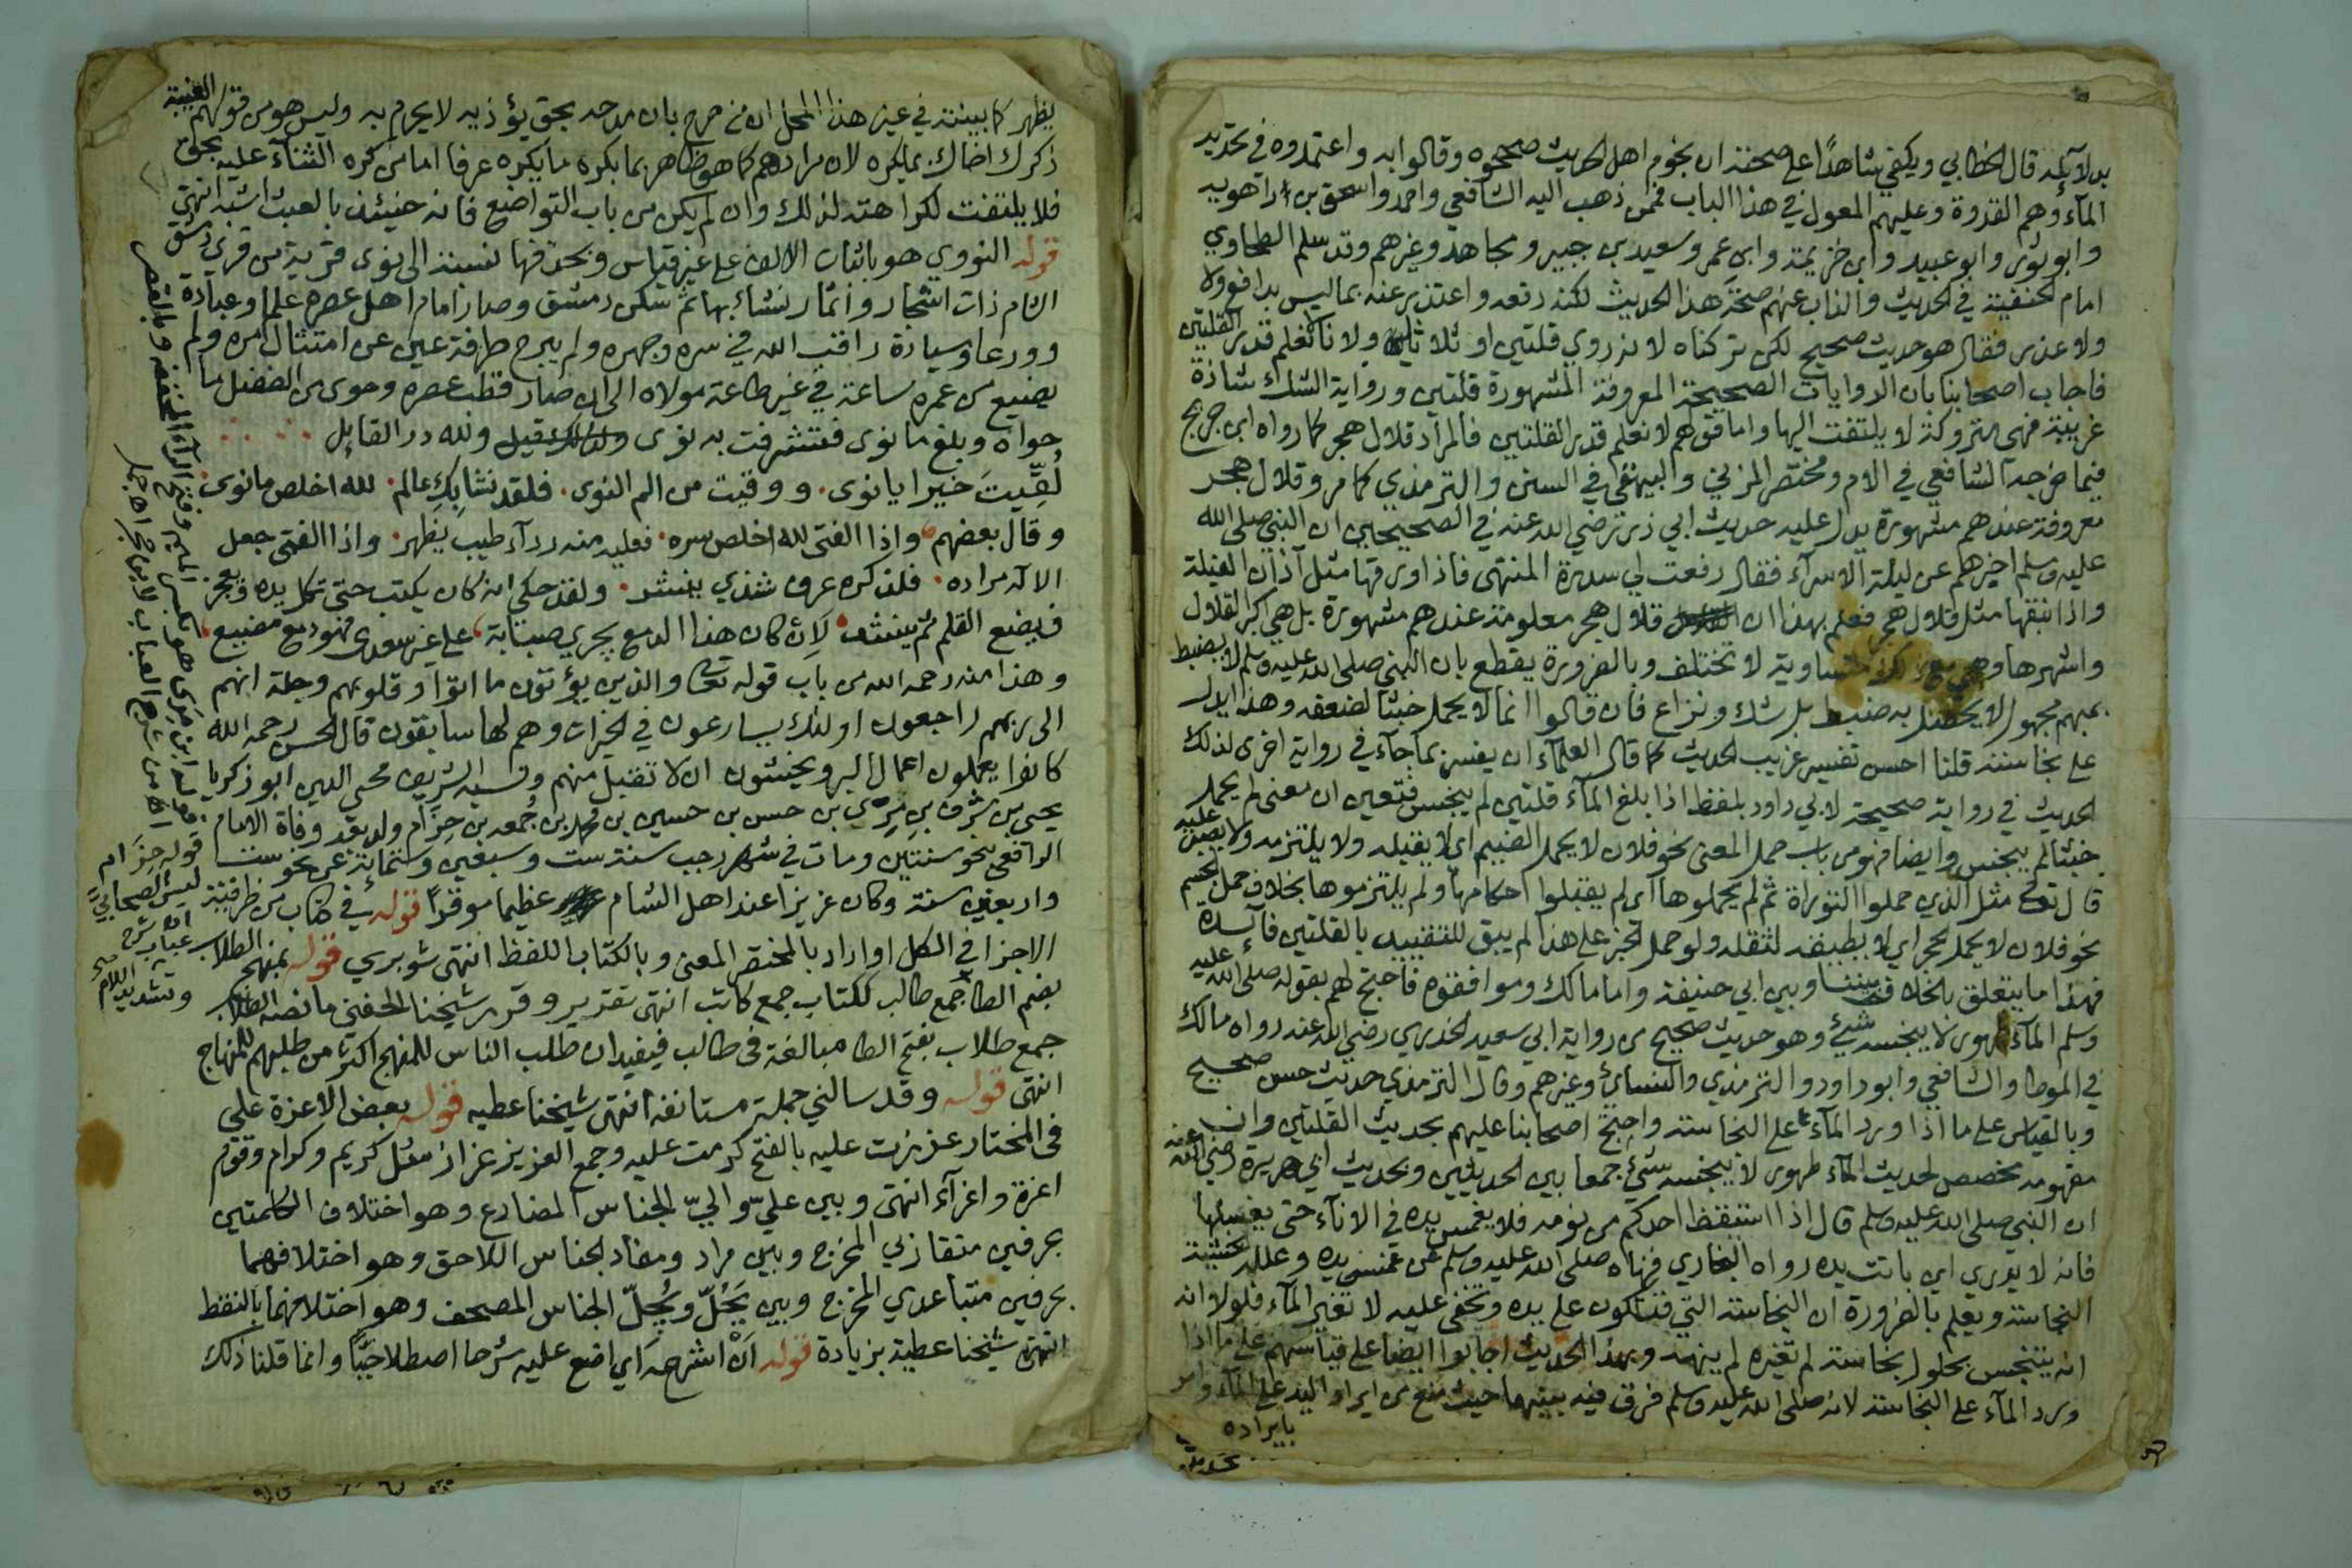 بدلائله قال الخطابي ويكفي شاهدا على صحته ان نجوم اهل الحديث صححوه وقالوا به واعتمدوه في تحديد
المآء وهم القدوة وعليهم المعول في هذا الباب فمن ذهب اليه الشافعي واحمد واسحق بن راهويه
وابو ثور وابو عبيد وابن خزيمة وابن عمر وسعيد بن جبير ومجاهد وغيرهم وقد سلم الطحاوي
امام الحنفية في الحديث والذاب عنهم صحة هذا الحديث لكنه دفعه واعتذر عنه بما ليس بدافع ولا
ولا عذر فقال هو حديث صحيح لكن تركناه لانه روي قلتين او ثلاثا ولانا لا نعلم قدر القلتين
فاجاب اصحابنا بان الروايات الصحيحة المعروفة المشهورة قلتين ورواية الشك شاذة
غريبة فهى متروكة لا يلتفت اليها واما قولهم لا نعلم قدر القلتين فالمراد قلال هجر كما رواه ابن جريج
فيما خرجه الشافعي في الام ومختصر المزني والبيهقي في السنن والترمذي كما مر وقلال هجر
معروفة عندهم مشهورة يدل عليه حديث ابي ذر رضي الله عنه في الصحيحين ان النبي صلى الله
عليه وسلم اخبرهم عن ليلة الاسرآء فقال رفعت لي سدرة المنتهى فاذا ورقها مثل آذان الفيلة
واذا نبقها مثل قلال هجر فعلم بهذا ان قلال هجر معلومة عندهم مشهورة بل هي اكبر القلال
واشهرها وهي متساوية لا تختلف وبالضرورة يقطع بان النبي صلى الله عليه وسلم لا يضبط
بمبهم مجهول لا يحصل به ضبط بل شك ونزاع فان قالوا انما لا يحمل خبثا لضعفه وهذا يدل
على نجاسته قلنا احسن تفسير غريب الحديث كما قال العلمآء ان يفسر بما جآء في رواية اخرى لذلك
الحديث في رواية صحيحة لابي داود بلفظ اذا بلغ المآء قلتين لم ينجس فتعين ان معنى لم يحمل
خبثا لم ينجس وايضا فهو من باب حمل المعنى نحو فلان لا يحمل الضيم اى لا يقبله ولا يلتزمه ولا يصبر عليه
قال تعالى مثل الذين حملوا التوراة ثم لم يحملوها اى لم يقبلوا احكامها ولم يلتزموها بخلاف حمل الجسم
نحو فلان لا يحمل الحجر اي لا يطيقه لثقله ولو حمل الخبر على هذا لم يبق للتقييد بالقلتين فآئدة
فهذا ما يتعلق بالخلاف بيننا وبين ابي حنيفة واما مالك وموافقوه فاحتج لهم بقوله صلى الله عليه
وسلم المآء طهور لا ينجسه شيئ وهو حديث صحيح من رواية ابي سعيد الخدري رضي الله عنه رواه مالك
في الموطا والشافعي وابو داود والترمذي والنسائي وغيرهم وقال الترمذي حديث حسن صحيح
وبالقياس على ما اذا ورد المآء على النجاسة واحتج اصحابنا عليهم بحديث القلتين وان
مفهومه مخصص لحديث المآء طهور لا ينجسه شيئ جمعا بين الحديثين وبحديث ابي هريرة رضي الله عنه
ان النبي صلى الله عليه وسلم قال اذا استيقظ احدكم من نومه فلا يغمس يده في الانآء حتى يغسلها
فانه لا يدري اين باتت يده رواه البخاري فنهاه صلى الله عليه وسلم عن غمس يده وعلله بخشية
النجاسة ويعلم بالضرورة ان النجاسة التي قد تكون على يده وتخفى عليه لا تغير المآء فلولا انه
انه ينتجس بحلول نجاسة لم تغيره لم ينهه وبهذا الحديث اجابوا ايضا على قياسهم على ما اذا
ورد المآء على النجاسة لانه صلى الله عليه وسلم فرق فيه بينهما حيث منع من ايراد اليد على المآء وامر
بايراده
يظهر كما بينته في غير هذا المحل ان من صرح بان مدحه بحق يؤذيه لا يحرم به وليس هو من قولهم الغيبة
ذكرك اخاك بما يكره لان مرادهم كما هو ظاهر بما يكره ما يكره عرفا اما من كره الثنآء عليه بحق
فلا يلتفت لكراهته لذلك وان لم يكن من باب التواضع فانه حينئذ بالعبث اشبه انتهى
قوله النووي هو باثبات الالف على غير قياس وبحذفها نسبة الى نوى قرية من قرى دمشق
الشام ذات اشجار واثمار نشاء بها ثم سكن دمشق وصار امام اهل عصره علما وعبادة
وورعا وسيادة راقب الله في سره وجهره ولم يبرح طرفة عين عن امتثال امره ولم
يضيع من عمره ساعة في غير طاعة مولاه الى ان صار قطب عصره وحوى من الفضل ما
حواه وبلغ ما نوى فتشرفت به نوى قيل ولله در القايل
لُقِّيتَ خيرا يا نوى. ووقيت من الم النوى. فلقد نشا بكِ عالم. لله اخلص ما نوى.
وقال بعضهم واذا الفتى لله اخلص سره. فعليه منه ردآء طيب يظهر. واذا الفتى جعل
الاله مراده. فلذكره عرف شذي ينشر. ولقد حكي انه كان يكتب حتى تكل يده ويعجز
فيضع القلم ثم ينشد لَاِن كان هذا الدمع يجري صبابة على غير سعدى فهو دمع مضيع
وهذا منه رحمه الله من باب قوله تعالى والذين يؤتون ما اتوا وقلوبهم وجلة انهم
الى ربهم راجعون اولئك يسارعون في الخيرات وهم لها سابقون قال الحسن رحمه الله
كانوا يعملون اعمال البر ويخشون ان لا تقبل منهم ونسبه الشريف محيي الدين ابو زكريا
يحيى بن شرف بن مِرَى بن حسن بن حسين بن محمد بن جُمعه بن حِزَام ولد بعد وفاة الامام
الرافعي بنحو سنتين ومات في شهر رجب سنة ست وسبعين وستمائة عن نحو ست
واربعين سنة وكان عزيزا عند اهل الشام عظيما موقرا قوله في كتاب من ظرفية
الاجزا في الكل او اراد بالمختصر المعنى وبالكتاب اللفظ انتهى شوبري قوله بمنهج الطلاب
بضم الطا جمع طالب ككتاب جمع كاتب انتهى تقدير وقرر شيخنا الحفني ما نصه الطلاب
جمع طلاب بفتح الطا مبالغة في طالب فيفيد ان طلب الناس للمنهج اكثر من طلبهم للمنهاج
انتهى قوله وقد سالني جملة مستانفة انتهى شيخنا عطيه قوله بعض الاعزة علي
في المختار عززت عليه بالفتح كرمت عليه وجمع العزيز عزاز مثل كريم وكرام وقوم
اعزة واعزآء انتهى وبين عليّ والىّ الجناس المضارع وهو اختلاف الكلمتين
بحرفين متقاربي المخرج وبين مراد ومفاد الجناس اللاحق وهو اختلافهما
بحرفين متباعدي المخرج وبين يَحُلّ ويُجِلّ الجناس المصحف وهو اختلافهما بالنقط
انتهى شيخنا عطية بزيادة قوله اَنْ اشرحه اي اضع عليه شرحا اصطلاحيًّا وانما قلنا ذلك
قوله حِزَام
ليس الصحابي
وتشديد اللام